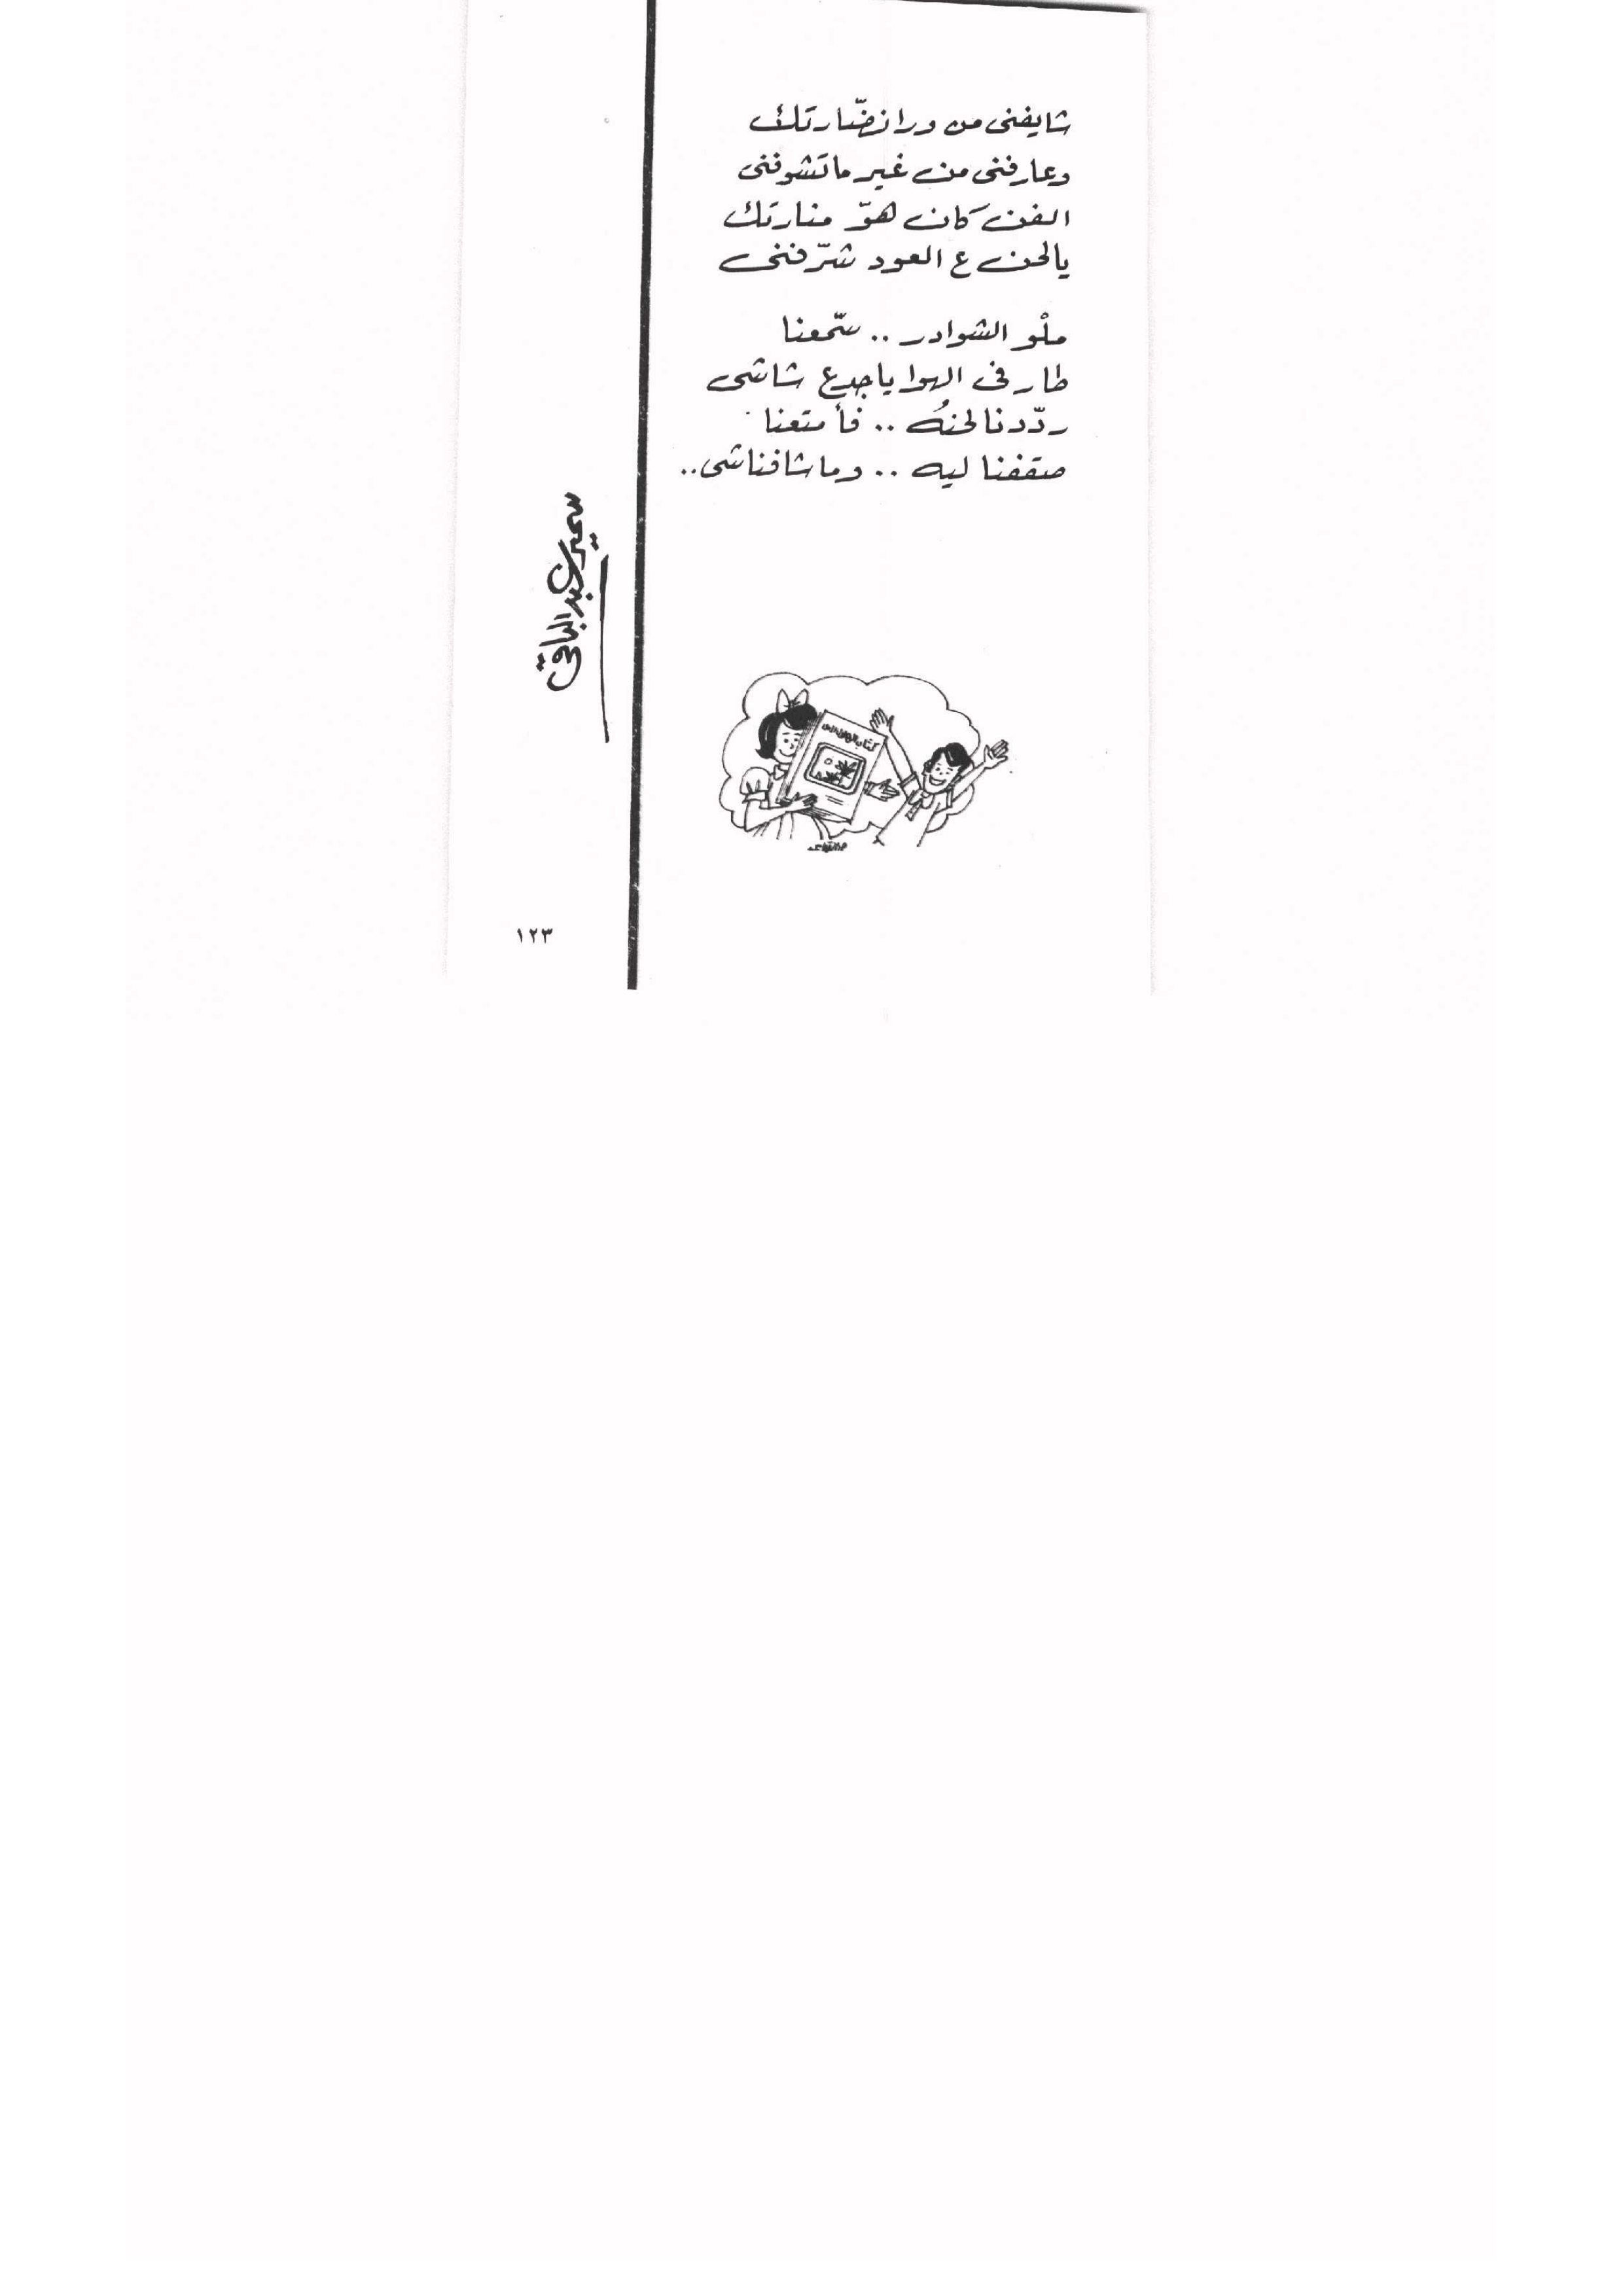 شايفنى من ورا نضّارتك
وعارفنى من غير ماتشوفنى
الفن كان هوّ منارتك
يالحن ع العود شرّفنى
ملْو الشوادر .. سّمعنا
طار فى الهوا ياجدع شاشى
ردّدنا لحنُه .. فأمتعنا
صقفنا ليه .. وماشافناشى..
سمير عبد الباقى
كتاب
١٢٣